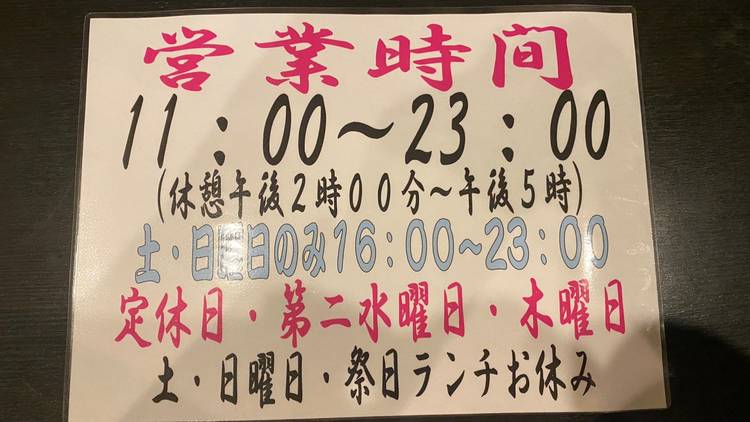 営業時间
11：00～23：00
(休憩午後2時00分～午後5時)
土・日曜日のみ16：00～23：00
定休日・第二水曜日・木曜日
土・日曜日・祭日ランチお休み